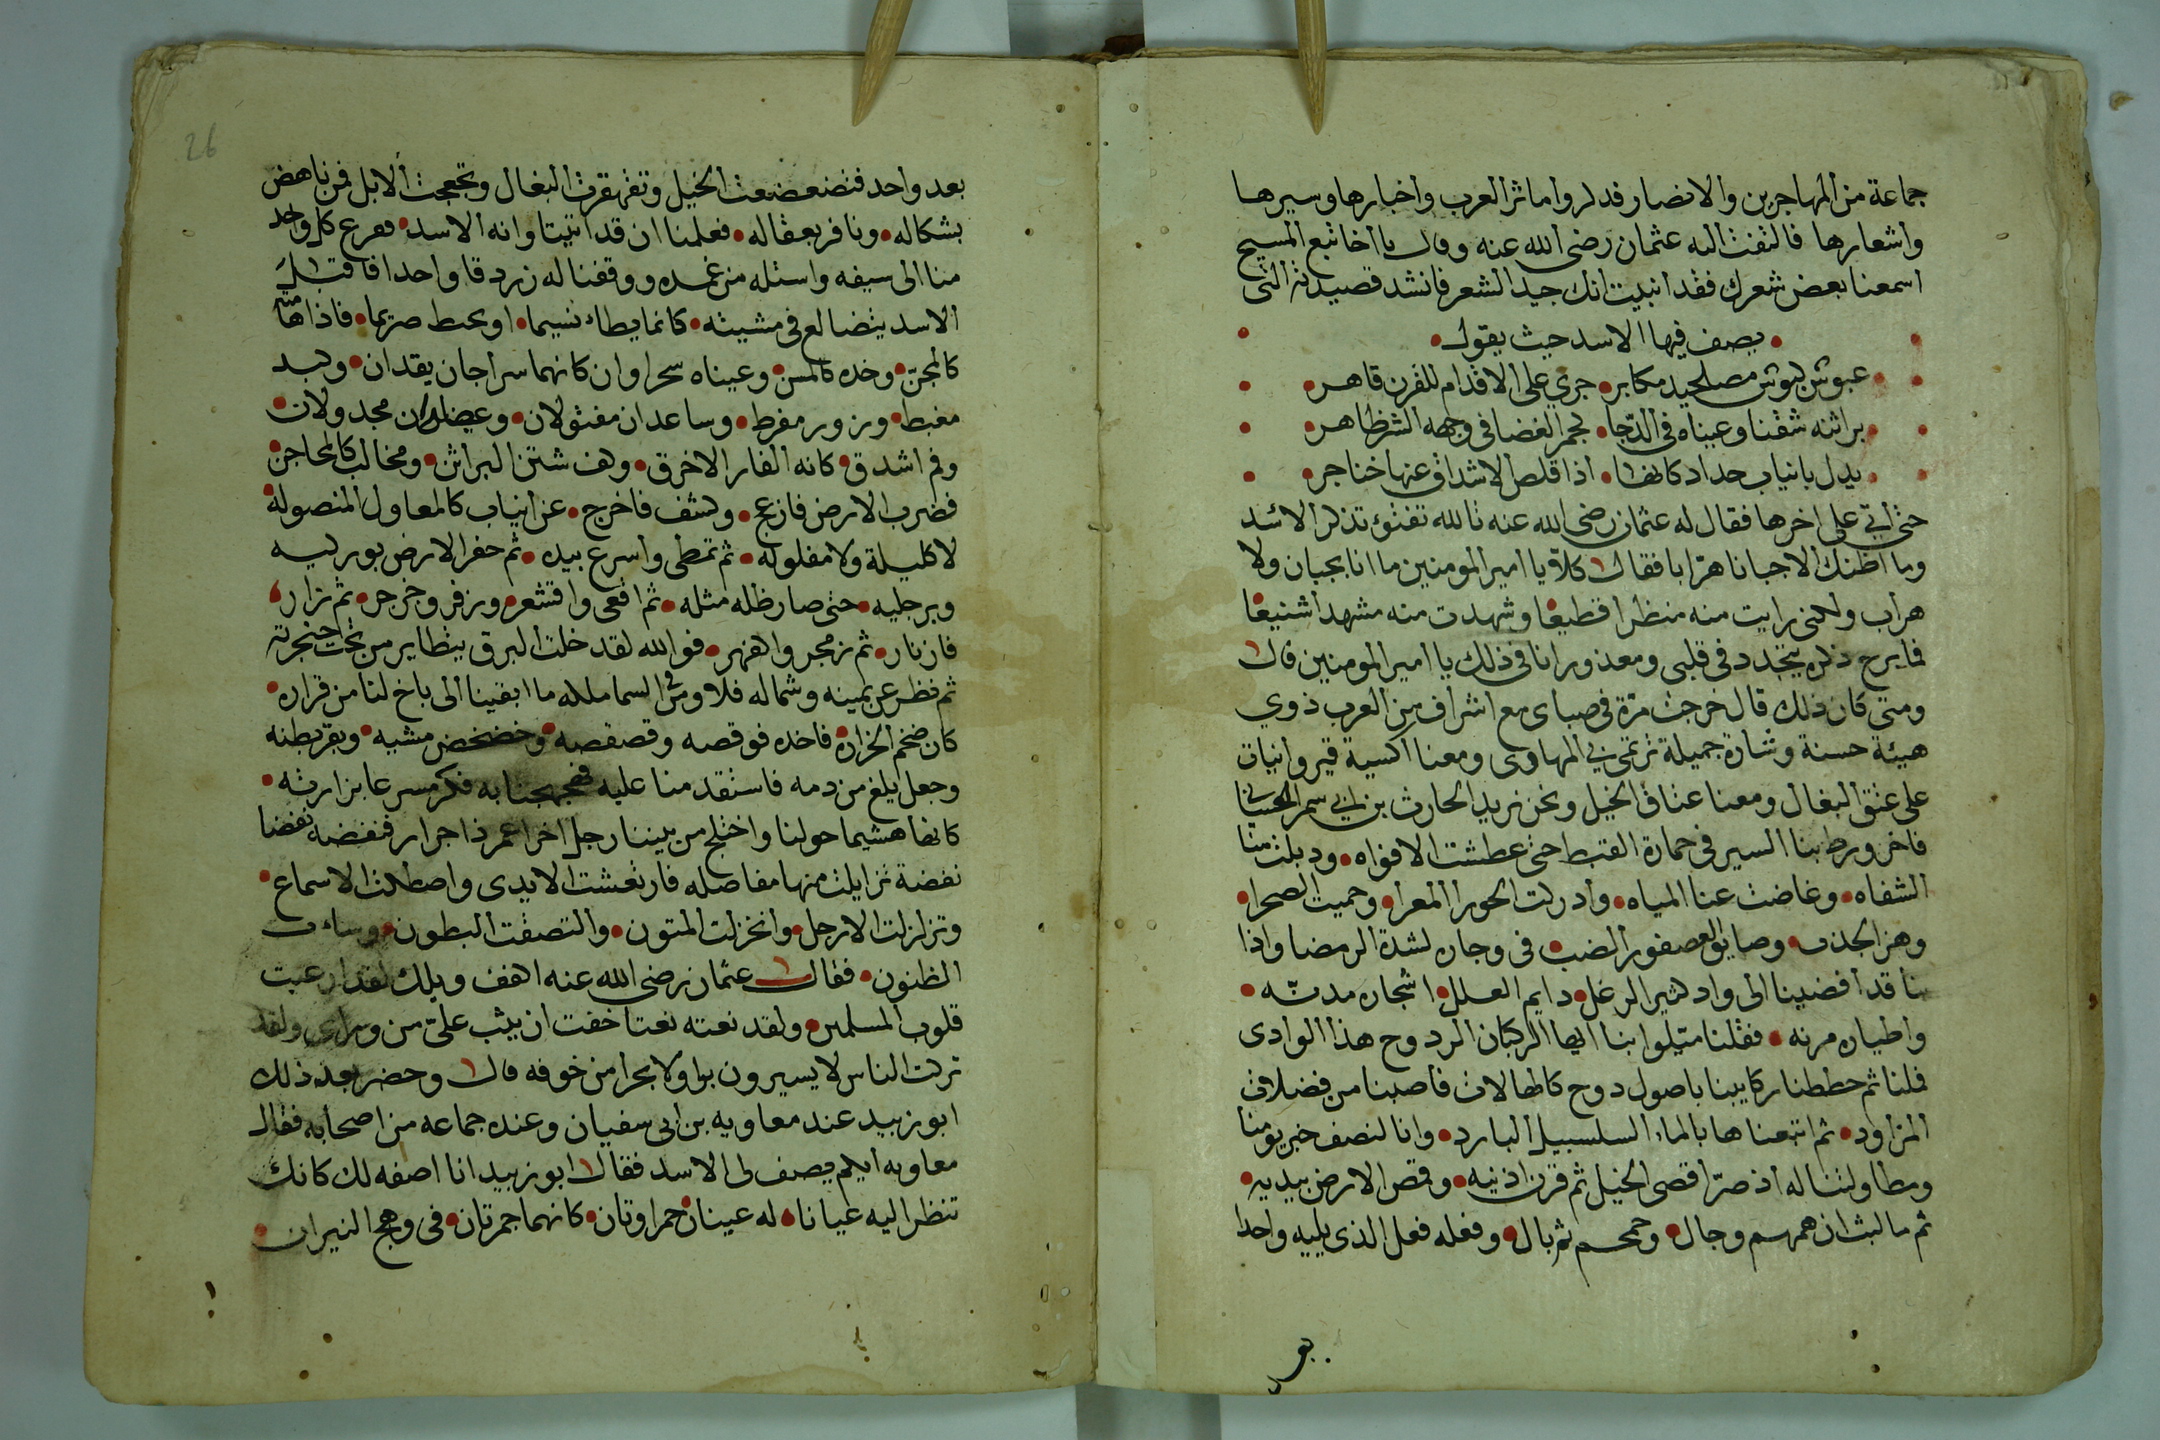 جماعة من المهاجرين والانصار فدكروا ماثر العرب واخبارها وسيرها
واشعارها فالتفت اليه عثمان رضى الله عنه وقال يا اخا تبع المسيح
اسمعنا بعض شعرك فقد انبيت انك جيد الشعر فانشد قصيدته التى
يصف فيها الاسد حيث يقول
عبوش شموش مصلخد مكابر جري على الاقدام للقرن قاهر
براثنه شقنا وعيناه فى الدجا كجمر الغضا فى وجهه الشر ظاهر
يدل بانياب حداد كانها اذا قلص الاشداق عنها خناجر
حتى اتى على اخرها فقال له عثمان رضى الله عنه تالله تفتؤ تذكر الاسد
وما اظنك الا جبانا هرّابا فقال كلاّ يا امير المومنين ما انا بجبان ولا
هراب ولكنى رايت منه منظرا فظيعا وشهدت منه مشهدا شنيعا
فما برح ذكره يتجدد فى قلبى ومعذور انا فى ذلك يا امير المومنين قال
ومتى كان ذلك قال خرجت مرّة فى صباى مع اشراف من العرب ذوي
هيئة حسنة وشارة جميلة ترتمى بى المهاوى ومعنا اكسية قير وانياق
على عنق البغال ومعنا عتاق الخيل ونحن نريد الحارث بن ابى سمر الغسانى
فاخرورط بنا السير فى حمارة القيظ حتى عطشت الافواه ودبلت منا
الشفاه وغاضت عنا المياه وادركت الحور المعرا وحميت الصحرا
وهز الجذف وضايق العصفور الضب فى وجاره لشدة الرمضا واذا
بنا قد افضينا الى واد كثير الرغل دايم العلل اشجاره مدنّه
واطياره مرنه فقلنا ميّلوا بنا ايها الركبان لردوح هذا الوادى
فلنا ثم حططنا ركايبنا باصول دوح كانها لان فاصبنا من فضلات
المزاود ثم اتبعناها بالماء السلسبيل البارد وانا لنصف خبر يومنا
ومطاولتنا له اذ صرّ اقصى الخيل ثم قرن اذنيه وفحص الارض بيديه
ثم ما لبث ان همهم وجال وحمحم ثم بال وفعله فعل الذى يليه واحدا
بعد
بعد واحد فتضعضعت الخيل وتقهقرت البغال وتجعجت الابل فمن ناهض
بشكاله ونافر بعقاله فعلمنا ان قد اتيتا وانه الاسد ففرع كل واحد
منا الى سيفه واستله من غمده ووقفنا له زردقا واحدا فاقبل
الاسد يتضالع فى مشيته كانما يطاء نسيما او يحط صريما فاذا هامته
كالمجنّ وخده كالمسن وعيناه سحراوان كانهما سراجان يقدان ولبد
مغبط وزور مفرط وساعدان مفتولان وعضدان مجدولان
وفم اشدق كانه الغار الاخرق وكف شتن البراثن ومخالب كالمحاجن
فضرب الارض فازعج وكشف فاخرج عن انياب كالمعاول المنصوله
لا كليلة ولا مفلوله ثم تمطى واسرع بيده ثم حفر الارض بوركيه
وبرجليه حتى صار ظله مثله ثم اقعى واقشعر وزفر وخرخر ثم زار
فازبار ثم زمجر واكفهر فوالله لقد خلت البرق يتطاير من تحت حنجرته
ثم نظر عن يمينه وشماله فلا ومن فى السما ملكه ما ابقينا الى باخ لنا من قراره
كان ضخم الخزاره فاخده فوقصه وقصقصه وخضخض مشيه وبقر بطنه
وجعل يلغ من دمه فاستقد منا عليه فجهجهنا به فكر مسرعا بزارته
كانها هشيما حولنا واختلج من بيننا رجل اخر اعمر ذا جرار فنفضه نفضا
نفضة تزايلت منها مفاصله فارتعشت الايدى واصطكت الاسماع
وتزلزلت الارجل وانخزلت المتون والتصقت البطون وساءت
الظنون فقال عثمان رضى الله عنه اكفف ويلك لقد ارعبت
قلوب المسلمين ولقد نعته نعتا خفت ان يثب علىّ من وراى ولقد
تركت الناس لا يسيرون برا ولا بحرا من خوفه قال وحضر بعد ذلك
ابو زبيد عند معاويه بن ابى سفيان وعنده جماعه من اصحابه فقال
معاويه ايكم يصف لى الاسد فقال ابو زبيد انا اصفه لك كانك
تنظر اليه عيانا له عينان حمراوتان كانهما جمرتان فى وهج النيران
26